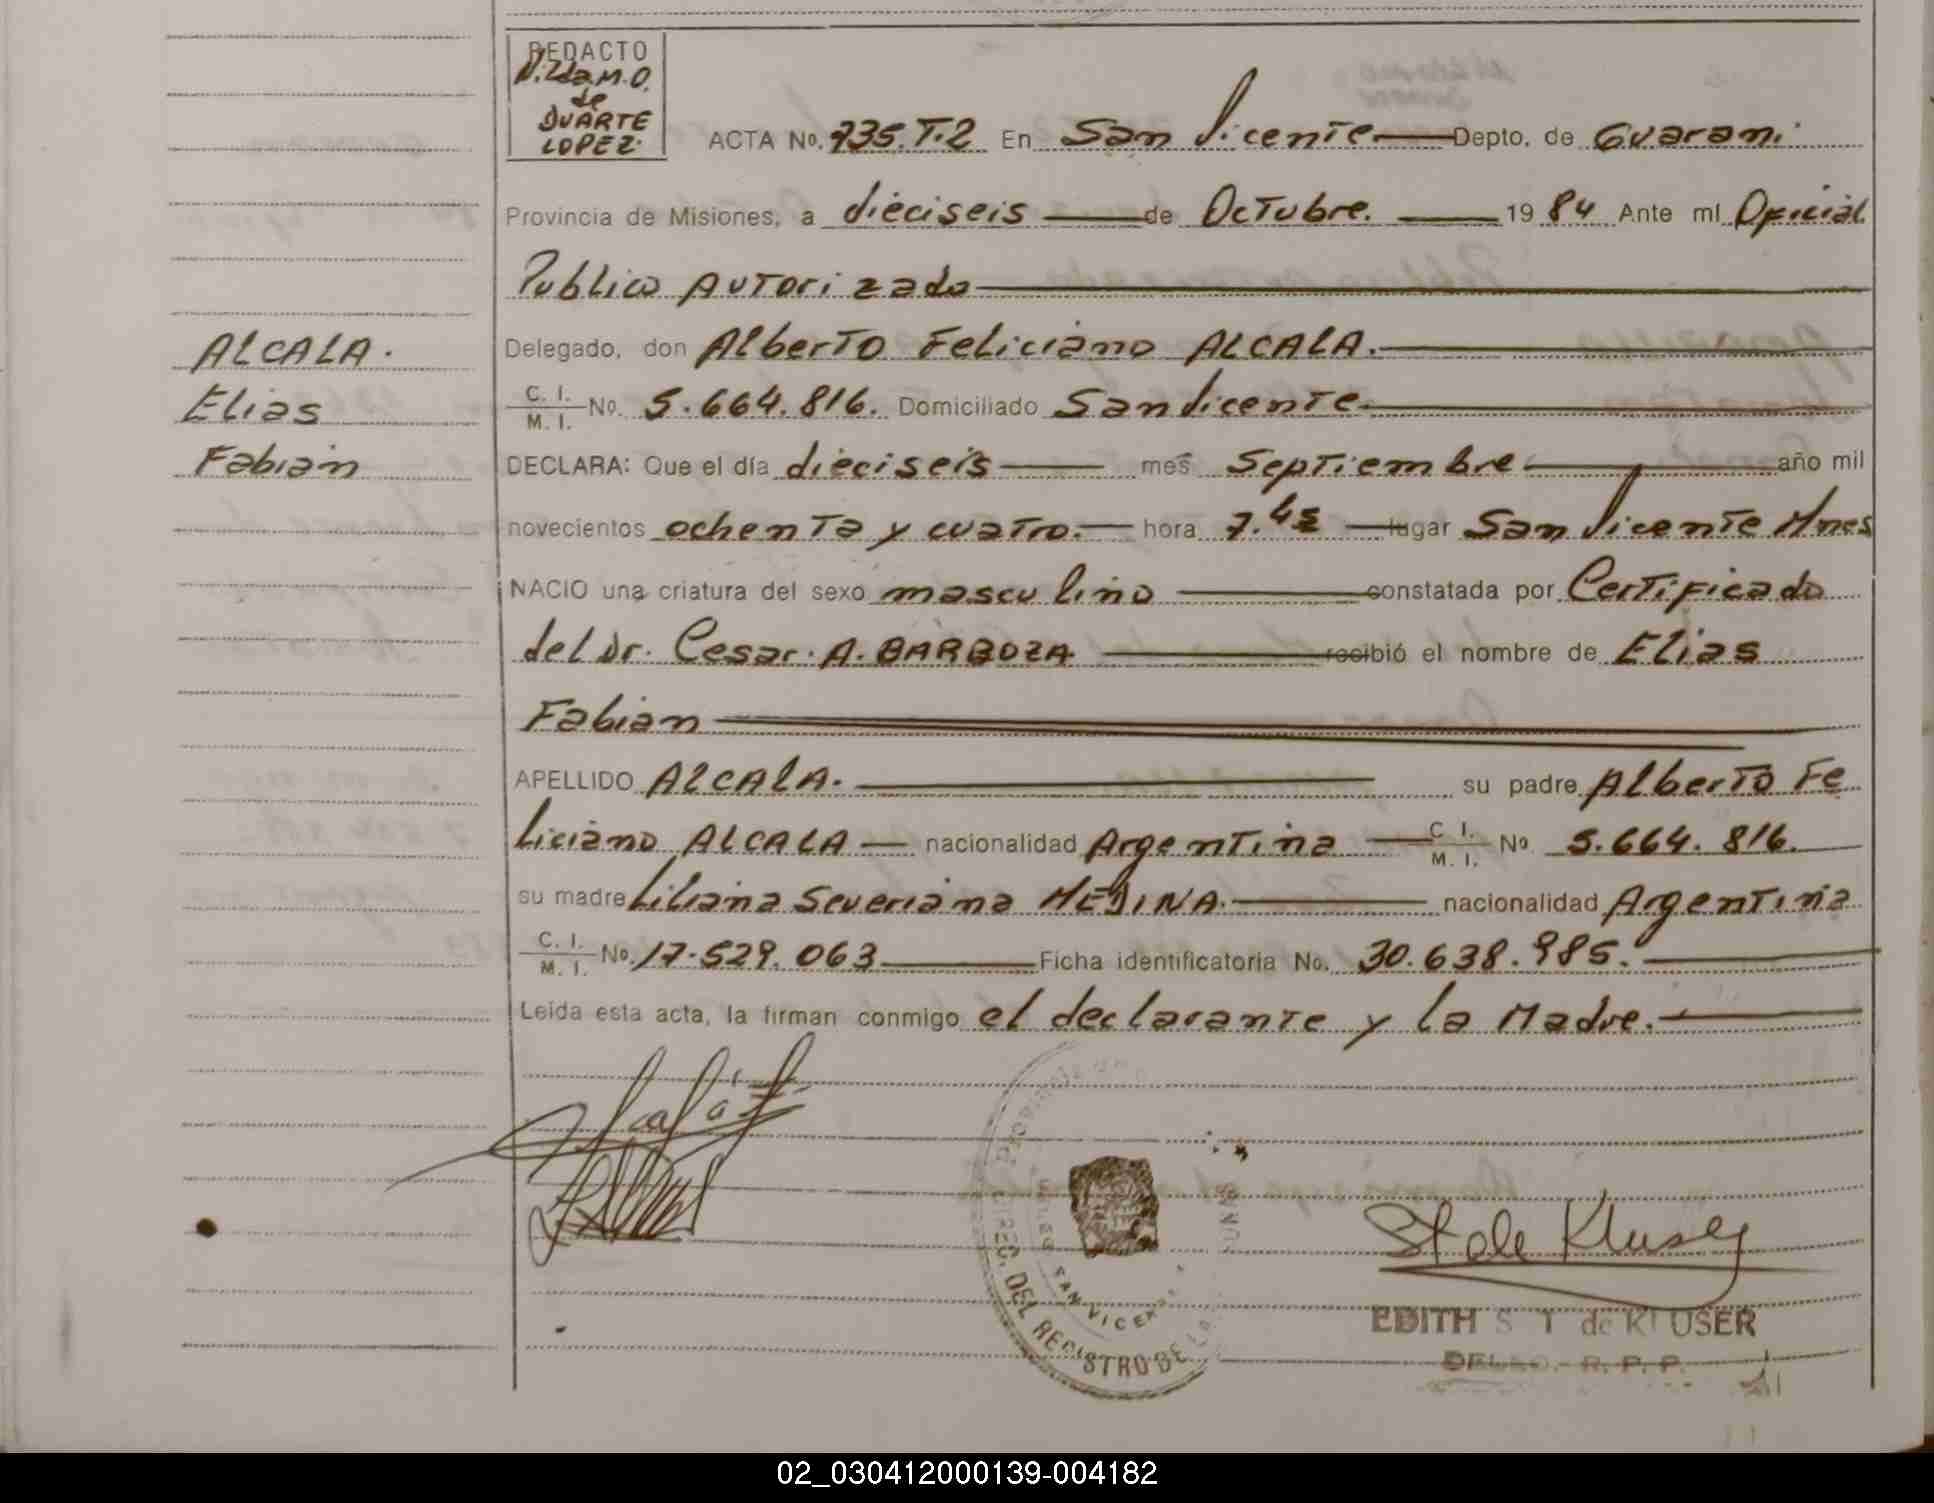 REDACTO
Nilda M.O.
de
DUARTE
LOPEZ.
ACTA No. 735.T.2 En San Vicente Depto. de Guarani
Provincia de Misiones, a dieciseis de Octubre. 19 84 Ante mí Oficial
Publico Autorizado
ALCALA.
Elias
Fabian
Delegado, don Alberto Feliciano ALCALA.
C. I. M. I. No. 5.664.816. Domiciliado San Vicente
DECLARA: Que el día dieciseis mes Septiembre año mil
novecientos ochenta y cuatro. hora 7.45 lugar San Vicente Mnes
NACIO una criatura del sexo masculino constatada por Certificado
del Dr. Cesar. A. BARBOZA recibió el nombre de Elias
Fabian
APELLIDO ALCALA. su padre Alberto Fe
liciano ALCALA nacionalidad Argentina C I. M. I. No 5.664.816.
su madre Liliana Severiana MEDINA. nacionalidad Argentina
C. I. M. I. No. 17.529.063 Ficha identificatoria No. 30.638.985.
Leída esta acta, la firman conmigo el declarante y la Madre.
PROVINCIA
DIREC. DEL REGISTRO DE LA
SAN VICENTE
EDITH S T de KLUSER
R. P. P.
02_030412000139-004182